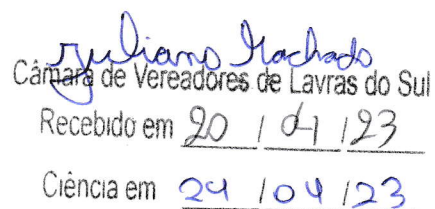 Juliano Machado
Câmara de Vereadores de Lavras do Sul
Recebido em 20 / 04 / 23
Ciência em 24 / 04 / 23